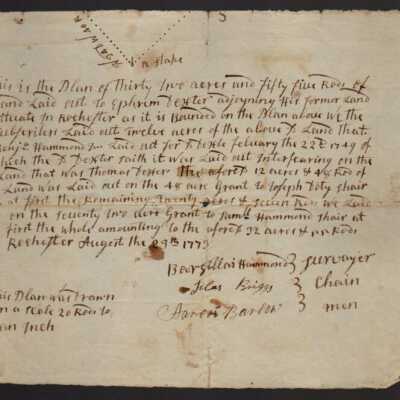 a stake
his is the Plan of Thirty Two acres and fifty five Rods of
Land Laid out to Ephrem Dexter adjoyning His former Land
situate in Rochester as it is Bounded on the Plan above we the
subscribers Laid out Twelve acres of the above D Land that
Benj Hammond Laid out for D Dexter February the 22 1749 of
which the D Dexter saith it was Laid out Interfearing on the
Land that was Thomas Dexter The afores 12 acres & 48 Rod of
Land was Laid out on the 48 acre Grant to Joseph Doty shair
at first the Remaining Twenty acres & seven Rods we Laid
on the seventy Two acre Grant to Saml Hammond shair at
first the whole amounting to the afores 32 acres & 55 Rods
Rochester Augost the 29th 1773
Hammond } Survayer
Silas Briggs } Chain
Barlow } men
his Plan was Drawn
on a scale 20 Rods to
an Inch